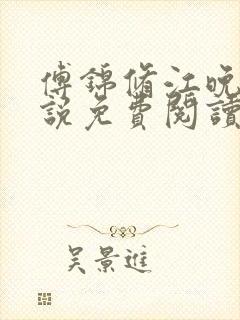 傅錦脩江晚
說免費閱讀
吴景進